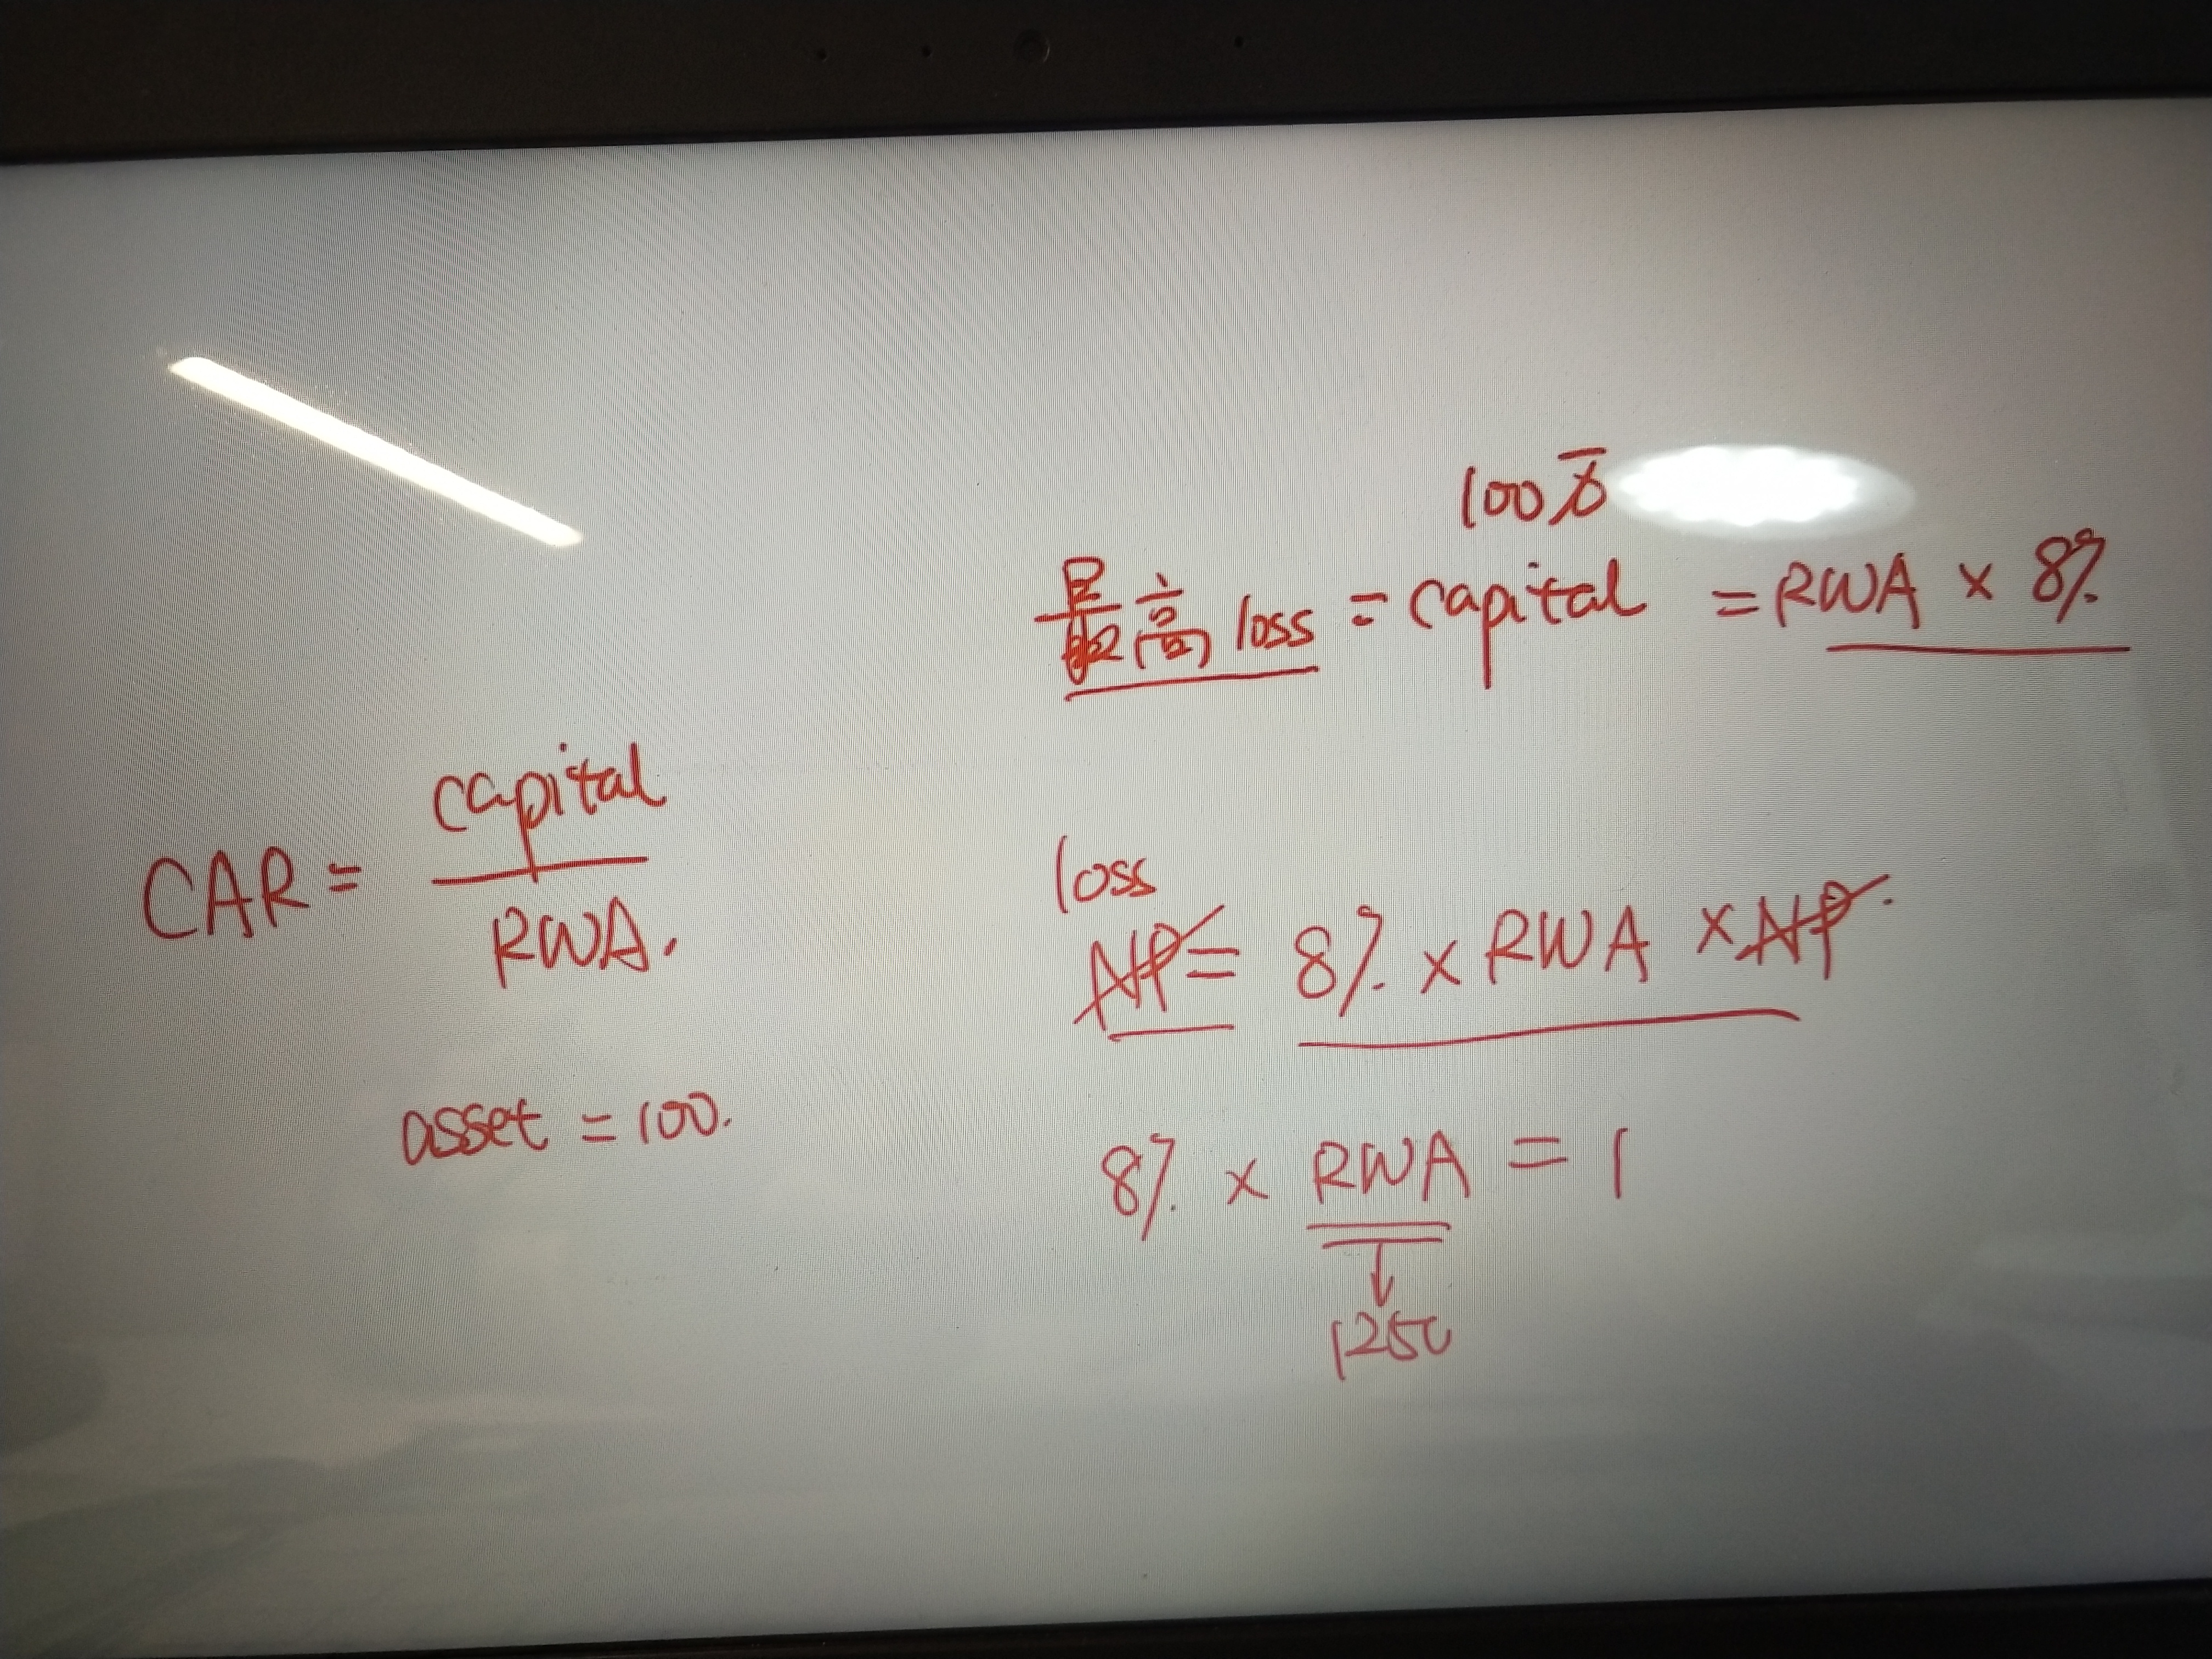 100万
最高 loss = capital = RWA × 8%
CAR = capital / RWA.
loss
NP = 8% × RWA × NP.
asset = 100.
8% × RWA = 1
↓
1250